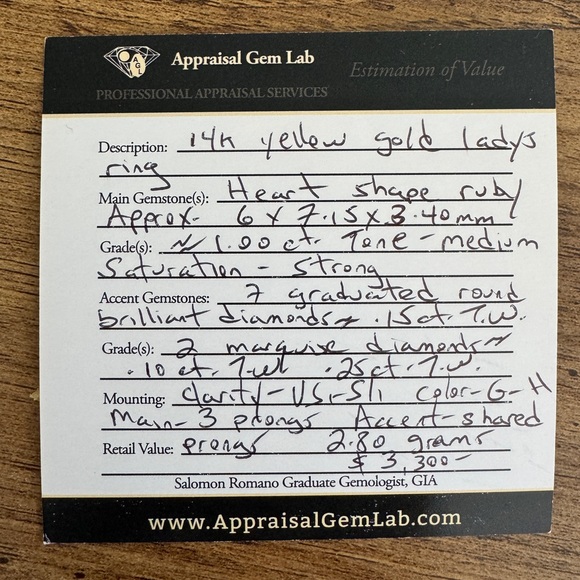 AGL
Appraisal Gem Lab
Estimation of Value
PROFESSIONAL APPRAISAL SERVICES
Description: 14k yellow gold ladys
ring
Main Gemstone(s): Heart shape ruby
Approx. 6 x 7.15 x 3.40 mm
Grade(s): ~ 1.00 ct. Tone - medium
Saturation - Strong
Accent Gemstones: 7 graduated round
brilliant diamonds ~ .15ct. T.W.
Grade(s): 2 marquise diamonds ~
.10 ct. T.W. .25ct. T.W.
Mounting: Clarity - VS1-SI1 Color - G-H
Main - 3 prongs Accent - shared
Retail Value: prongs 2.80 grams
$ 3,300-
Salomon Romano Graduate Gemologist, GIA
www.AppraisalGemLab.com